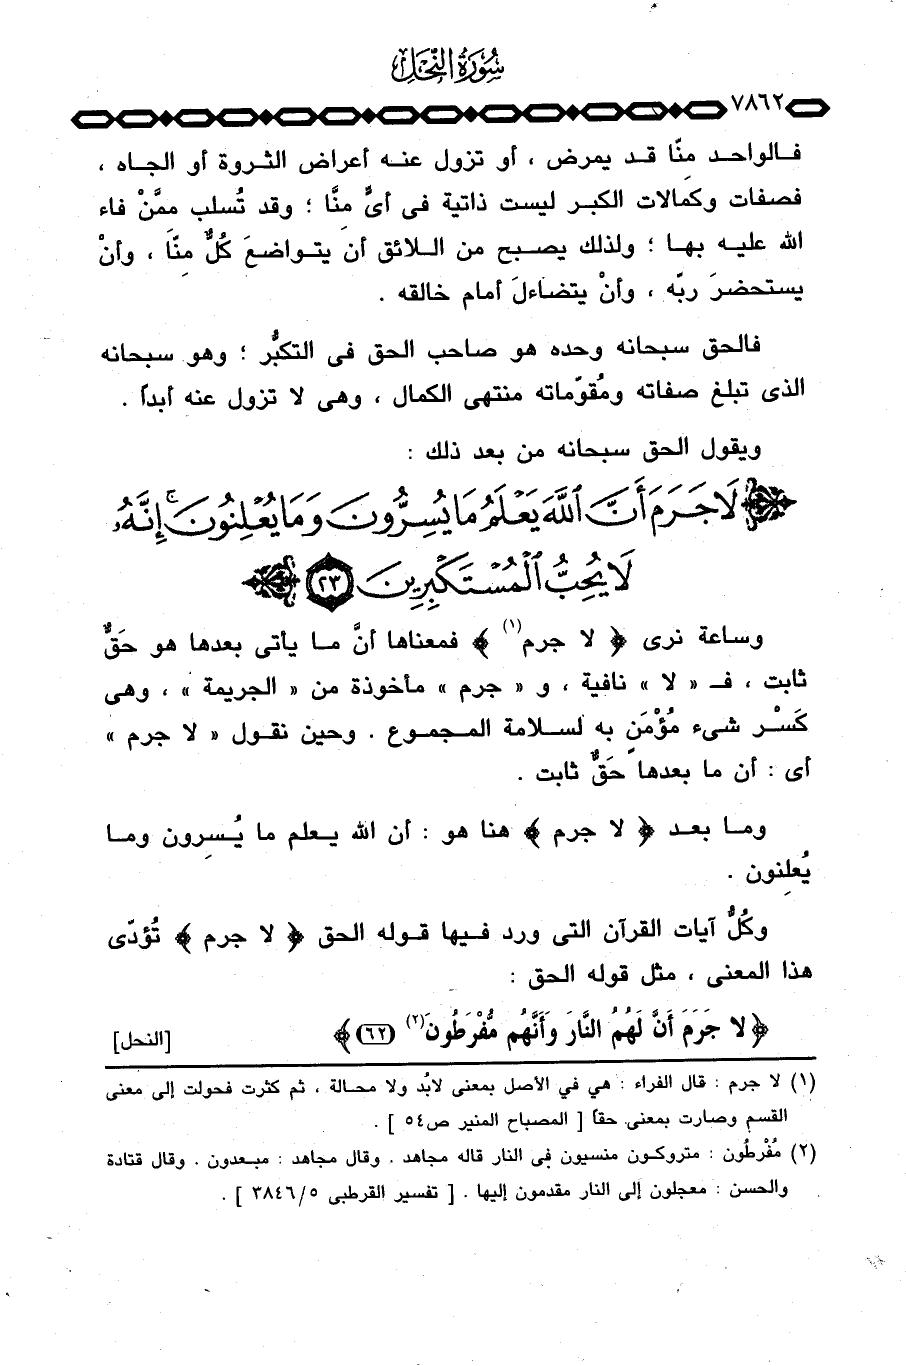 سُورَةُ النَّحْلِ
٧٨٦٢
فـالواحـد منَّا قـد يمرض ، أو تزول عنـه أعراض الثـروة أو الجـاه ،
فصفات وكمالات الكبـر ليست ذاتية فى أىٍّ مِنَّا ؛ وقد تُسلب ممَّنْ فاء
الله عليـه بهـا ؛ ولذلك يصـبح من اللائق أن يتـواضـعَ كُلٌّ مِنَّا ، وأنْ
يستحضرَ ربّه ، وأنْ يتضاءلَ أمام خالقه .
فالحق سبحانه وحده هو صاحب الحق فى التكبُّر ؛ وهو سبحانه
الذى تبلغ صفاته ومُقوّماته منتهى الكمال ، وهى لا تزول عنه أبداً .
ويقول الحق سبحانه من بعد ذلك :
لَا جَرَمَ أَنَّ ٱللَّهَ يَعْلَمُ مَا يُسِرُّونَ وَمَا يُعْلِنُونَ ۚ إِنَّهُۥ
لَا يُحِبُّ ٱلْمُسْتَكْبِرِينَ ٢٣
وساعة نرى ﴿ لا جرم (١) ﴾ فمعناها أنَّ مـا يأتى بعدها هو حَقٌّ
ثابت ، فـ « لا » نافية ، و « جرم » مأخوذة من « الجريمة » ، وهى
كَسْر شىء مُؤْمَنٍ به لسـلامة المـجمـوع . وحين نقول « لا جرم »
أى : أن ما بعدها حَقٌّ ثابت .
ومـا بعـد ﴿ لا جرم ﴾ هنا هو : أن الله يـعلم ما يُسِرون ومـا
يُعلِنون .
وكُلُّ آيات القرآن التى ورد فـيها قـوله الحق ﴿ لا جرم ﴾ تُؤدّى
هذا المعنى ، مثل قوله الحق :
﴿ لا جَرَمَ أَنَّ لَهُمُ النَّارَ وَأَنَّهُم مُّفْرَطُونَ (٢) (٦٢) ﴾ [النحل]
(١) لا جرم : قال الفراء : هي في الأصل بمعنى لابُد ولا محـالة ، ثم كثرت فحولت إلى معنى
القسم وصارت بمعنى حقاً [ المصباح المنير ص٥٤ ] .
(٢) مُفْرطُون : متروكـون منسيون في النار قاله مجاهد . وقال مجاهد : مبـعدون . وقال قتادة
والحسن : معجلون إلى النار مقدمون إليها . [ تفسير القرطبى ٣٨٤٦/٥ ] .